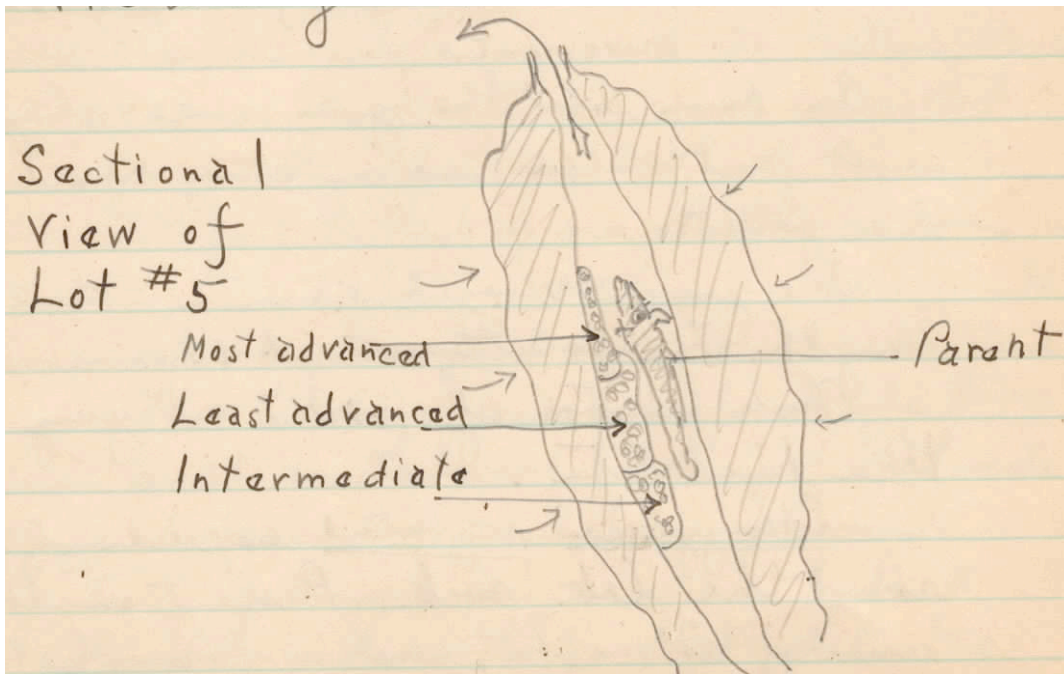 Sectional
View of
Lot #5
Most advanced
Least advanced
Intermediate
Parent